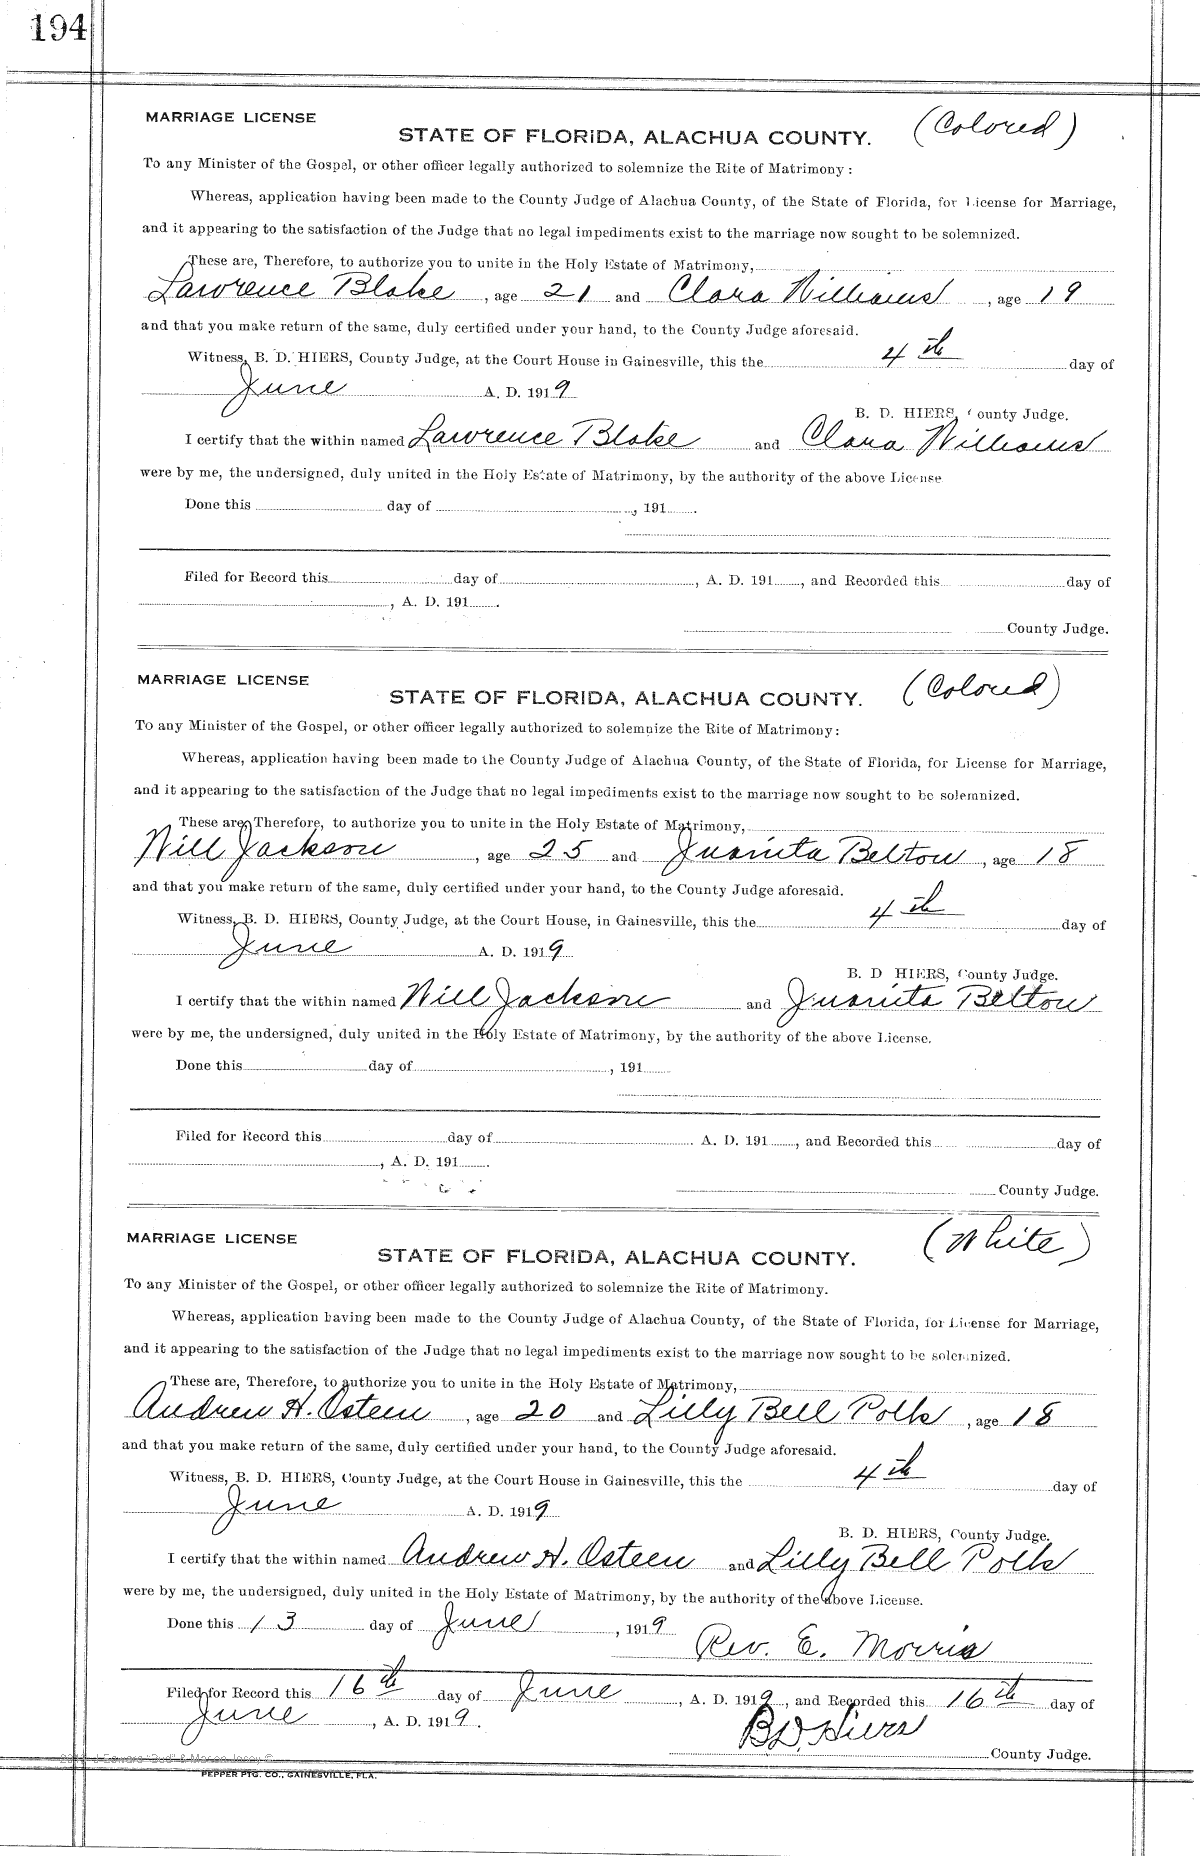 194
MARRIAGE LICENSE
STATE OF FLORIDA, ALACHUA COUNTY. (Colored)
To any Minister of the Gospel, or other officer legally authorized to solemnize the Rite of Matrimony :
Whereas, application having been made to the County Judge of Alachua County, of the State of Florida, for License for Marriage,
and it appearing to the satisfaction of the Judge that no legal impediments exist to the marriage now sought to be solemnized.
These are, Therefore, to authorize you to unite in the Holy Estate of Matrimony,
Lawrence Blake , age 21 and Clara Williams , age 19
and that you make return of the same, duly certified under your hand, to the County Judge aforesaid.
Witness, B. D. HIERS, County Judge, at the Court House in Gainesville, this the 4th day of
June A. D. 1919
B. D. HIERS, County Judge.
I certify that the within named Lawrence Blake and Clara Williams
were by me, the undersigned, duly united in the Holy Estate of Matrimony, by the authority of the above License
Done this day of , 191 .
Filed for Record this day of , A. D. 191 , and Recorded this day of
, A. D. 191 .
County Judge.
MARRIAGE LICENSE
STATE OF FLORIDA, ALACHUA COUNTY. (Colored)
To any Minister of the Gospel, or other officer legally authorized to solemnize the Rite of Matrimony:
Whereas, application having been made to the County Judge of Alachua County, of the State of Florida, for License for Marriage,
and it appearing to the satisfaction of the Judge that no legal impediments exist to the marriage now sought to be solemnized.
These are, Therefore, to authorize you to unite in the Holy Estate of Matrimony,
Will Jackson , age 25 and Juanita Belton , age 18
and that you make return of the same, duly certified under your hand, to the County Judge aforesaid.
Witness, B. D. HIERS, County Judge, at the Court House, in Gainesville, this the 4th day of
June A. D. 1919
B. D HIERS, County Judge.
I certify that the within named Will Jackson and Juanita Belton
were by me, the undersigned, duly united in the Holy Estate of Matrimony, by the authority of the above License.
Done this day of , 191
Filed for Record this day of . A. D. 191 , and Recorded this day of
, A. D. 191 .
County Judge.
MARRIAGE LICENSE
STATE OF FLORIDA, ALACHUA COUNTY. (White)
To any Minister of the Gospel, or other officer legally authorized to solemnize the Rite of Matrimony.
Whereas, application having been made to the County Judge of Alachua County, of the State of Florida, for License for Marriage,
and it appearing to the satisfaction of the Judge that no legal impediments exist to the marriage now sought to be solemnized.
These are, Therefore, to authorize you to unite in the Holy Estate of Matrimony,
Andrew H. Osteen , age 20 and Lilly Bell Polk , age 18
and that you make return of the same, duly certified under your hand, to the County Judge aforesaid.
Witness, B. D. HIERS, County Judge, at the Court House in Gainesville, this the 4th day of
June A. D. 1919
B. D. HIERS, County Judge.
I certify that the within named Andrew H. Osteen and Lilly Bell Polk
were by me, the undersigned, duly united in the Holy Estate of Matrimony, by the authority of the above License.
Done this 13 day of June , 1919
Rev. E. Morris
Filed for Record this 16th day of June , A. D. 1919 , and Recorded this 16th day of
June , A. D. 1919 .
B D. Hiers
County Judge.
PEPPER PTG. CO., GAINESVILLE, FLA.